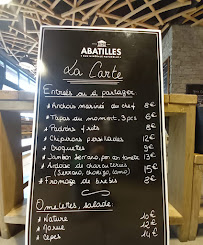 ABATILLES
La Carte
Entrées ou à partager
* Anchois marinés du chef 8€
* Tapas du moment, 3 pcs 6€
* Padrons frits 8€
* Chipirons persillades 12€
* Croquettes 9€
* Jambon Serrano, pan con tomate 13€
* Ardoise de charcuteries 15€
(Serrano, chorizo, lomo)
* Fromage de brebis 8€
Omelettes, salade:
* Nature 10€
* Jaune 12€
* Cèpes 14€